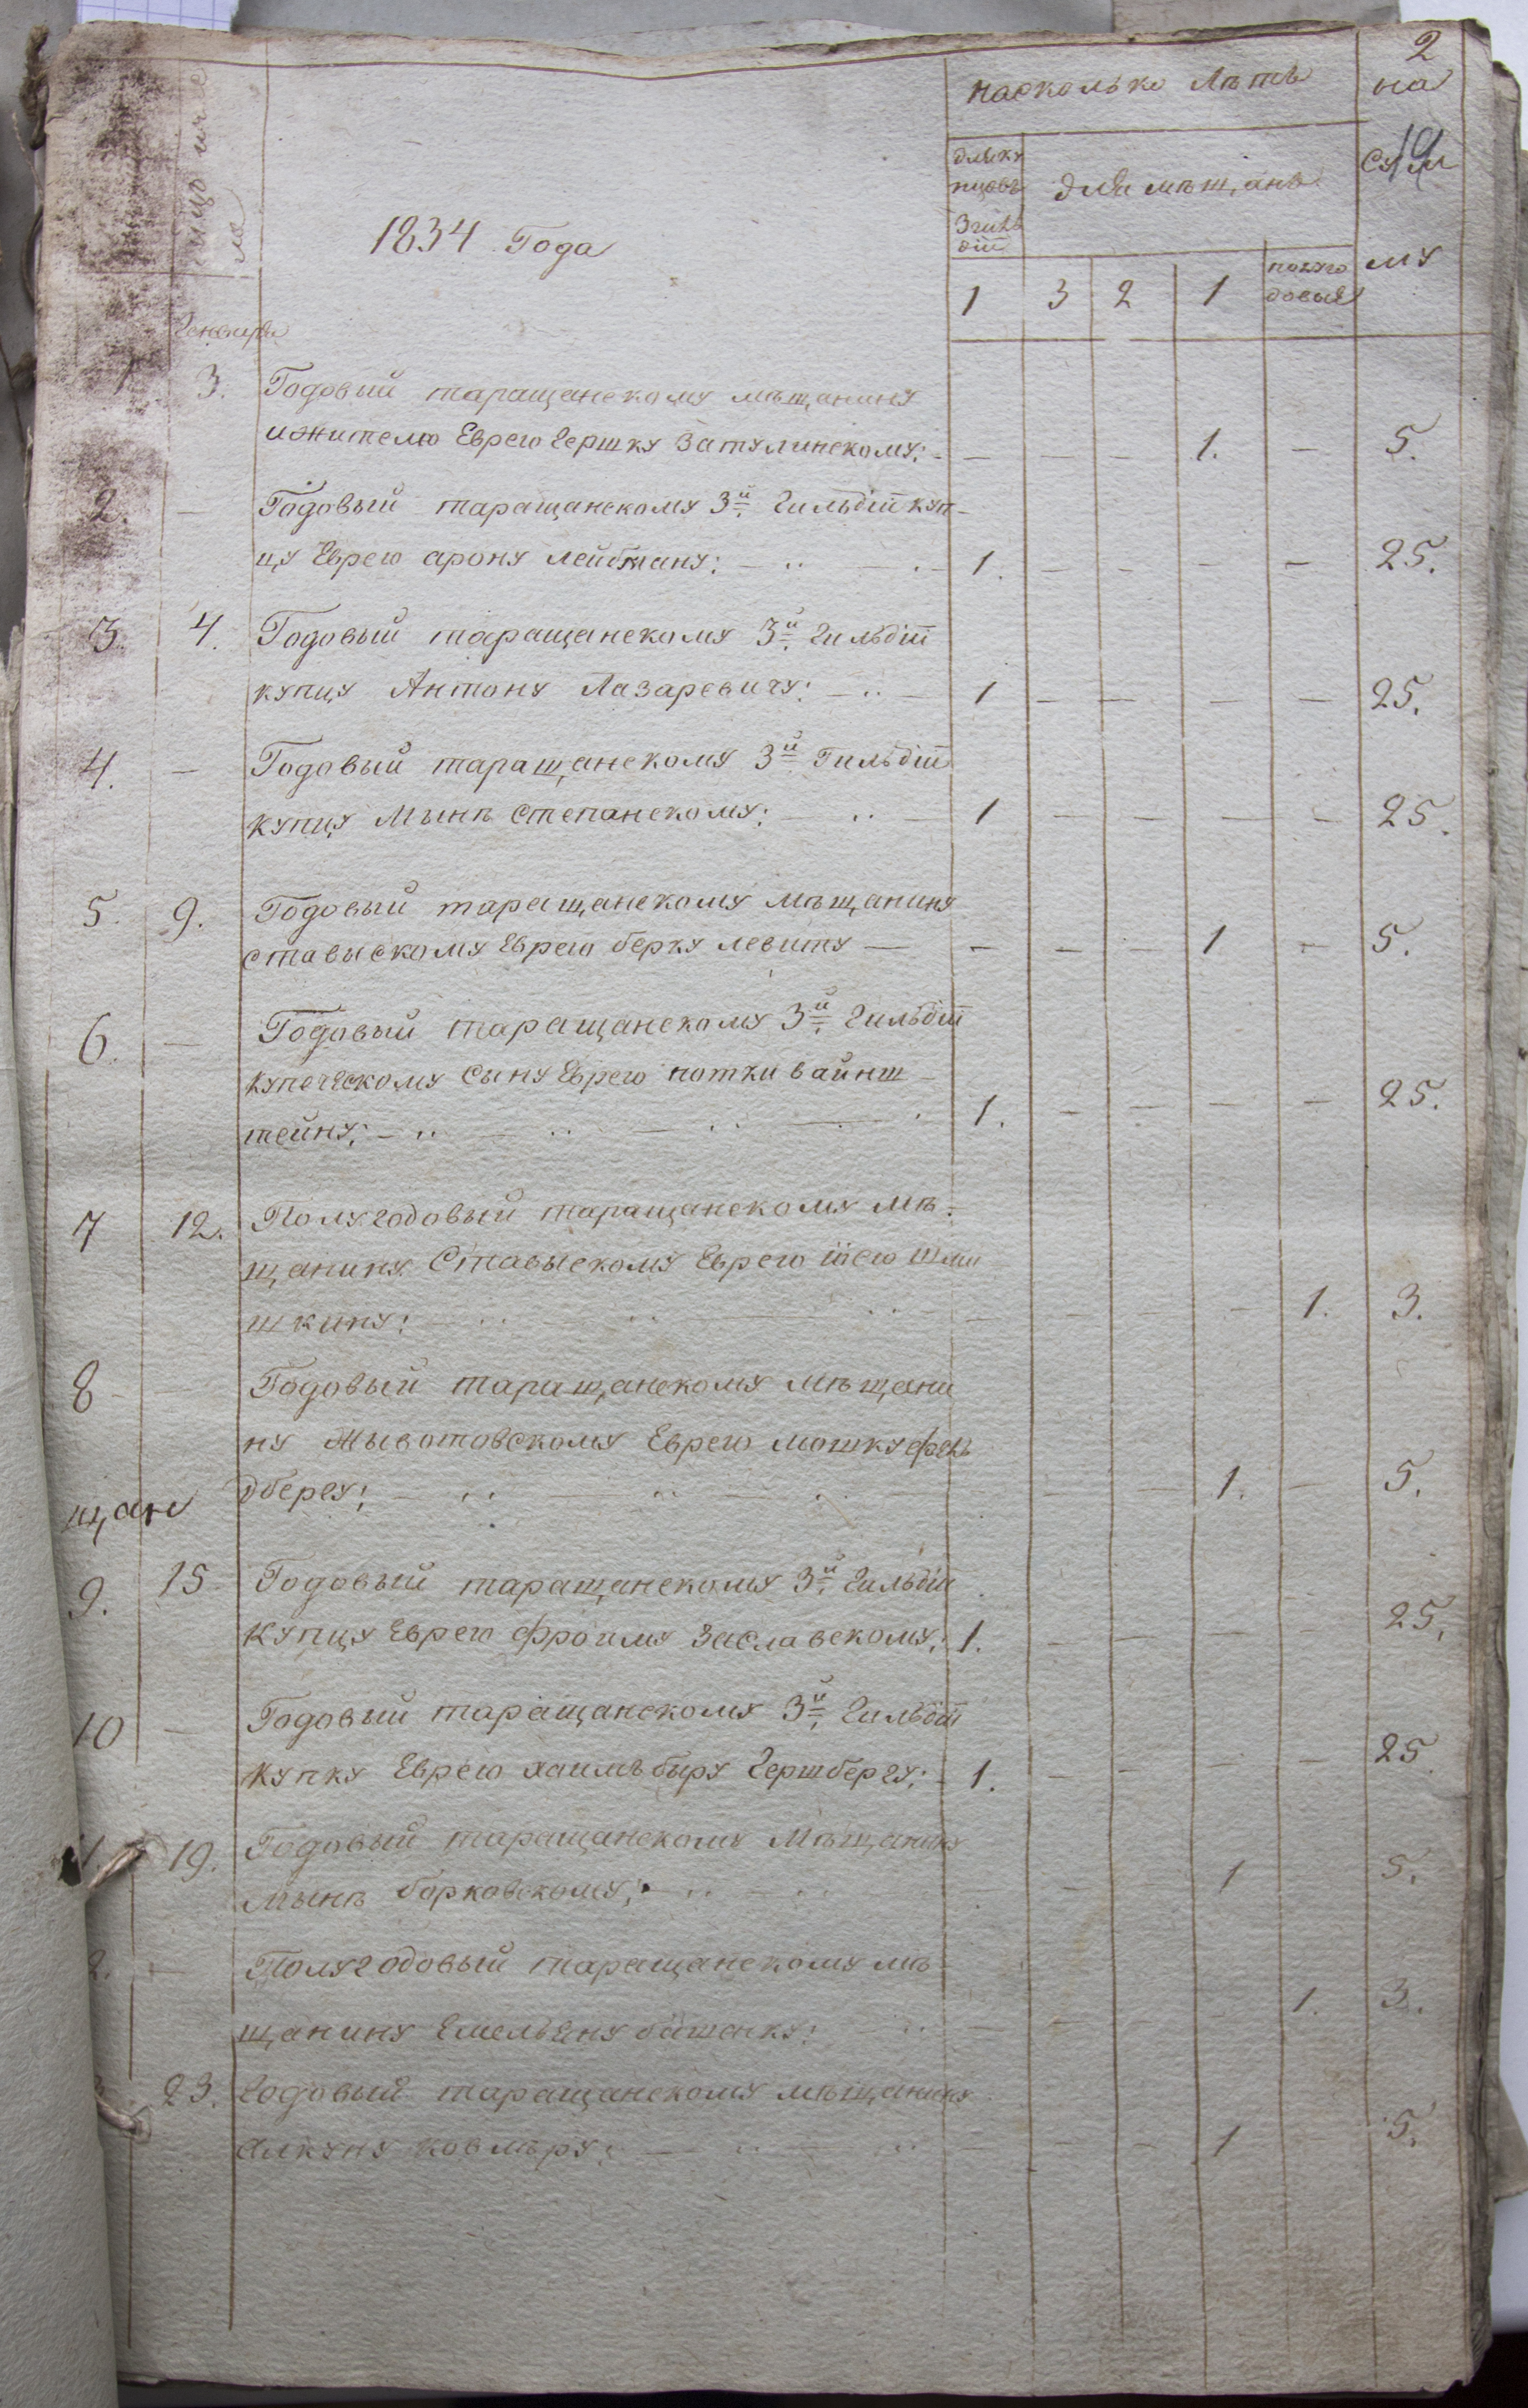 2
насколько лѣтъ
на
длѣку
пцовъ
для мѣщанъ
Сум
3 гиль
діи
му
1834 Года
число
1
3
2
1
полуго
довыя
Генваря
1 3. Годовый таращанскому мѣщанину
и жителю Еврею Гершку Затулинскому: - — — — 1. — 5.
2. — Годовый таращанскому 3й Гильдіи куп-
цу Еврею арону лейбману: — 1. — — — — 25.
3. 4. Годовый таращанскому 3й Гильдіи
купцу Антону Лазаревичу: — 1 — — — — 25.
4. — Годовый таращанскому 3й Гильдіи
купцу Мынѣ Степанскому: — 1 — — — — 25.
5. 9. Годовый таращанскому мѣщанину
ставыскому Еврею берку левиту — — — — 1 — 5.
6. — Годовый таращанскому 3й Гильдіи
купеческому сыну Еврею потки вайнш
тейну: — 1. — — — — 25.
7 12. Полугодовый таращанскому мѣ-
щанину Ставыскому Еврею іосю шли
шкину: — — — — 1. 3.
8 — Годовый таращанскому мѣщани
ну жывотовскому Еврею мошку фель
дбергу: — — — 1. — 5.
щане
9. 15 Годовый таращанскому 3й Гильдіи
купцу Еврею фроиму Заславскому: 1. — — — — 25.
10 — Годовый таращанскому 3й Гильдіи
купку Еврею хаимъ быру Гершбергу: 1. — — — — 25
19. Годовый таращанскому мѣщанину
мынѣ борковскому: — — — 1 5.
2. — Полугодовый таращанскому мѣ-
щанину Емельяну — — — 1. 3.
23. Годовый таращанскому мѣщанину
— — 1 — 5.